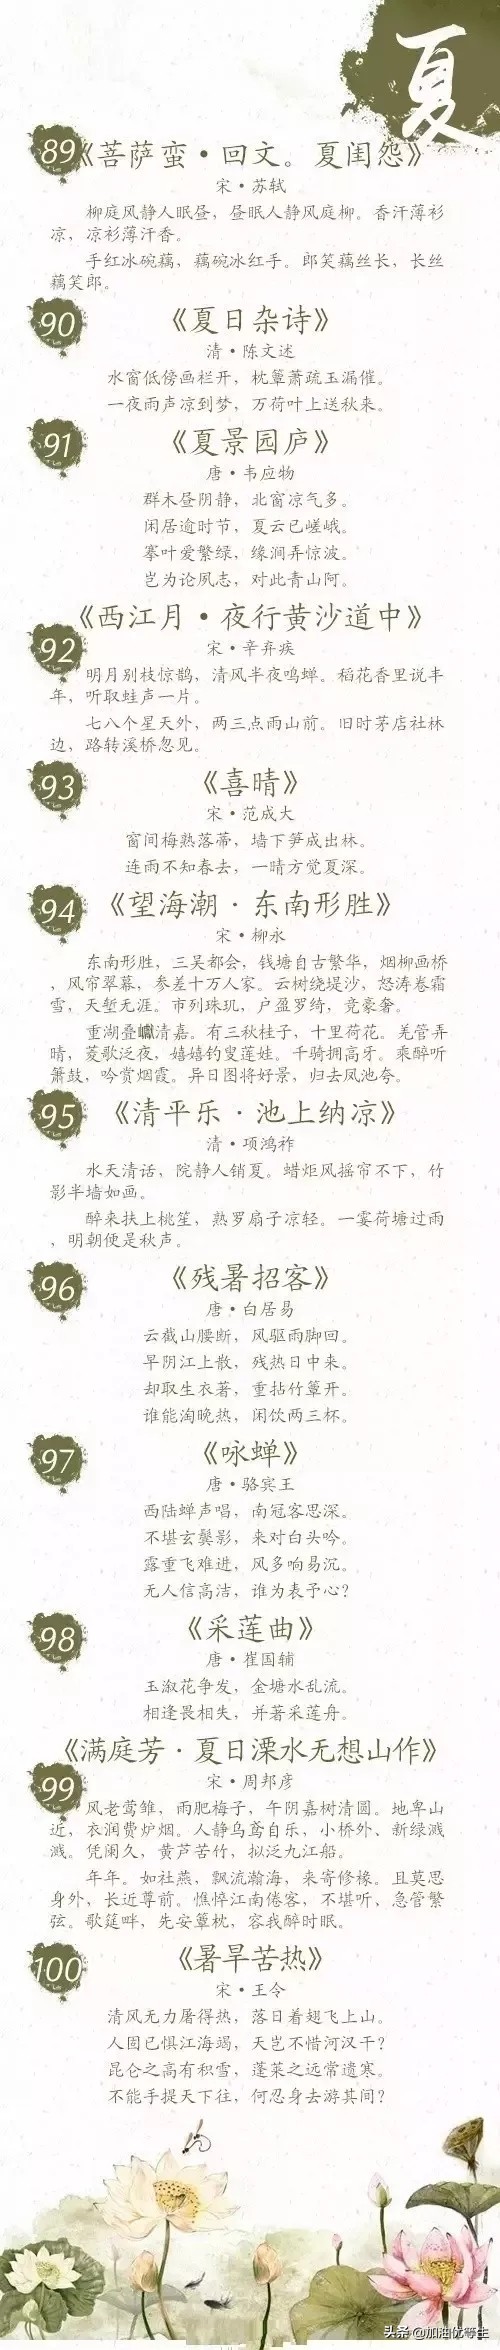 夏
89《菩萨蛮•回文。夏闺怨》
宋•苏轼
柳庭风静人眠昼，昼眠人静风庭柳。香汗薄衫
凉，凉衫薄汗香。
手红冰碗藕，藕碗冰红手。郎笑藕丝长，长丝
藕笑郎。
90
《夏日杂诗》
清•陈文述
水窗低傍画栏开，枕簟萧疏玉漏催。
一夜雨声凉到梦，万荷叶上送秋来。
91
《夏景园庐》
唐•韦应物
群木昼阴静，北窗凉气多。
闲居逾时节，夏云已嵯峨。
搴叶爱繁绿，缘涧弄惊波。
岂为论夙志，对此青山阿。
《西江月•夜行黄沙道中》
92
宋•辛弃疾
明月别枝惊鹊，清风半夜鸣蝉。稻花香里说丰
年，听取蛙声一片。
七八个星天外，两三点雨山前。旧时茅店社林
边，路转溪桥忽见。
93
《喜晴》
宋•范成大
窗间梅熟落蒂，墙下笋成出林。
连雨不知春去，一晴方觉夏深。
94
《望海潮·东南形胜》
宋•柳永
东南形胜，三吴都会，钱塘自古繁华，烟柳画桥
，风帘翠幕，参差十万人家。云树绕堤沙，怒涛卷霜
雪，天堑无涯。市列珠玑，户盈罗绮，竞豪奢。
重湖叠巘清嘉。有三秋桂子，十里荷花。羌管弄
晴，菱歌泛夜，嬉嬉钓叟莲娃。千骑拥高牙。乘醉听
箫鼓，吟赏烟霞。异日图将好景，归去凤池夸。
95
《清平乐·池上纳凉》
清•项鸿祚
水天清话，院静人销夏。蜡炬风摇帘不下，竹
影半墙如画。
醉来扶上桃笙，熟罗扇子凉轻。一霎荷塘过雨
，明朝便是秋声。
96
《残暑招客》
唐•白居易
云截山腰断，风驱雨脚回。
早阴江上散，残热日中来。
却取生衣著，重拈竹簟开。
谁能淘晚热，闲饮两三杯。
97
《咏蝉》
唐•骆宾王
西陆蝉声唱，南冠客思深。
不堪玄鬓影，来对白头吟。
露重飞难进，风多响易沉。
无人信高洁，谁为表予心？
98
《采莲曲》
唐•崔国辅
玉溆花争发，金塘水乱流。
相逢畏相失，并著采莲舟。
《满庭芳·夏日溧水无想山作》
99
宋•周邦彦
风老莺雏，雨肥梅子，午阴嘉树清圆。地卑山
近，衣润费炉烟。人静乌鸢自乐，小桥外、新绿溅
溅。凭阑久，黄芦苦竹，拟泛九江船。
年年。如社燕，飘流瀚海，来寄修椽。且莫思
身外，长近尊前。憔悴江南倦客，不堪听、急管繁
弦。歌筵畔，先安簟枕，容我醉时眠。
100
《暑旱苦热》
宋•王令
清风无力屠得热，落日着翅飞上山。
人固已惧江海竭，天岂不惜河汉干？
昆仑之高有积雪，蓬莱之远常遗寒。
不能手提天下往，何忍身去游其间？
头条@加油优等生